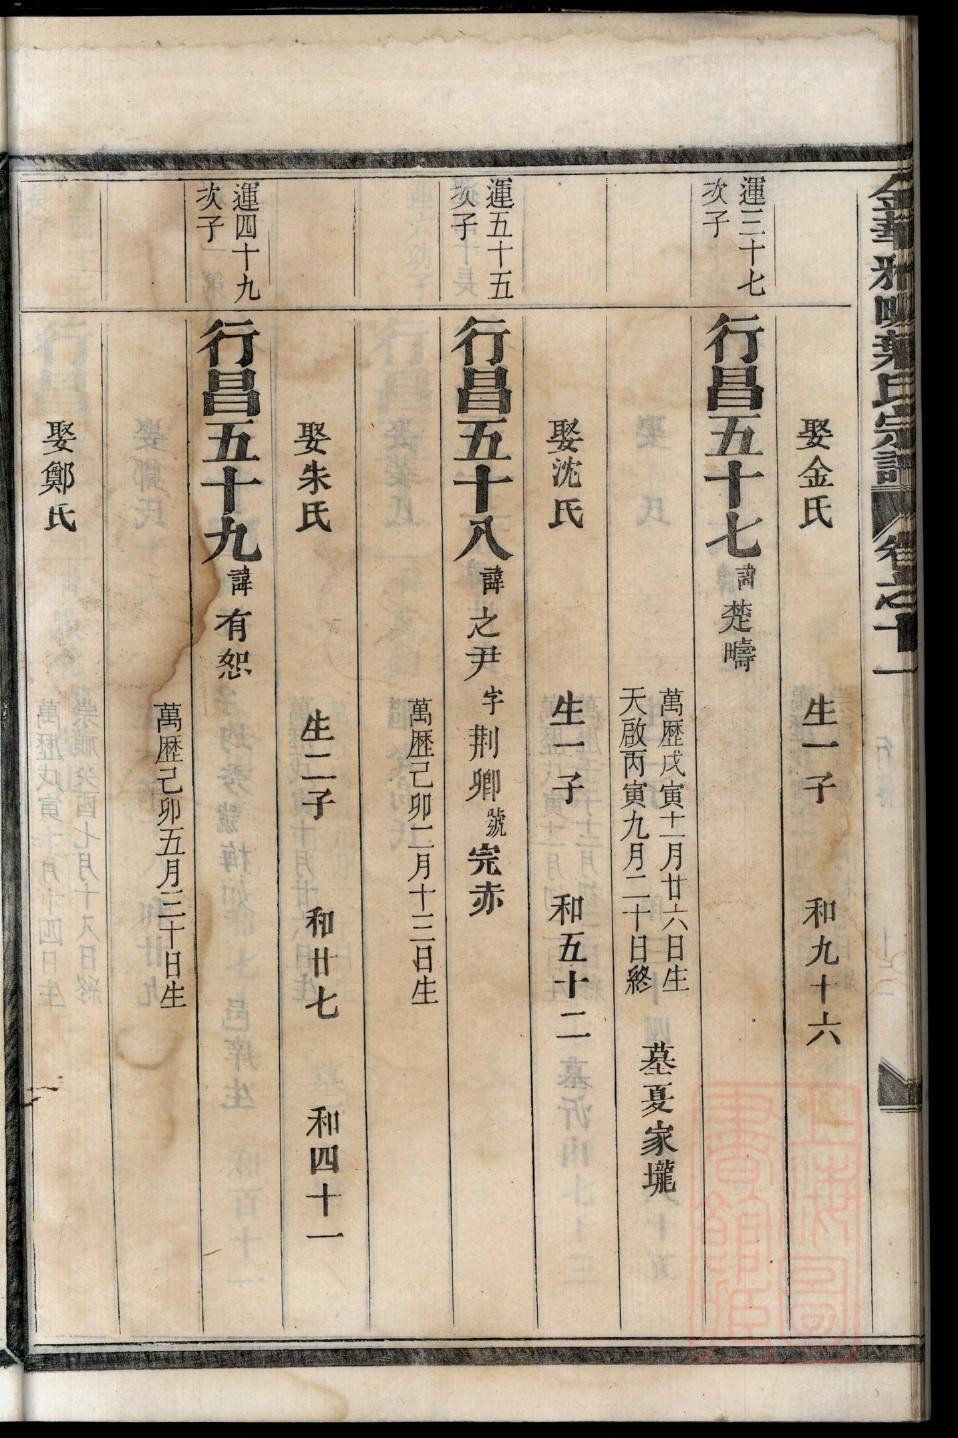 金華雅畈葉氏宗譜 卷之十一
娶金氏 生一子 和九十六
運三十七
次子
行昌五十七 諱楚疇
萬歷戊寅十一月廿六日生
天啟丙寅九月二十日終
墓夏家壠
娶沈氏 生一子 和五十二
運五十五
次子
行昌五十八 諱之尹 字荆卿 號完赤
萬歷己卯二月十三日生
娶朱氏 生二子 和廿七 和四十一
運四十九
次子
行昌五十九 諱有恕
萬歷己卯五月三十日生
娶鄭氏